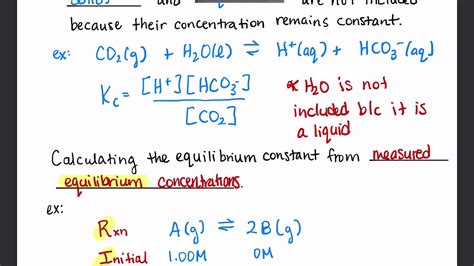 and are not included
because their concentration remains constant.
ex: CO₂(g) + H₂O(l) ⇌ H⁺(aq) + HCO₃⁻(aq)
Kc = [H⁺][HCO₃⁻] / [CO₂]
* H₂O is not
included b/c it is
a liquid
Calculating the equilibrium constant from measured
equilibrium concentrations.
ex:
Rxn A(g) ⇌ 2B(g)
Initial 1.00M 0M